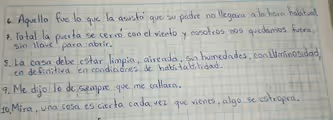 6. Aquello fue lo que la asustó que su padre no llegara a la hora habitual
8. Total la puerta se cerró con el viento y nosotros nos quedamos fuera,
sin llave para abrir.
5. La casa debe estar limpia, aireada, sin humedades, con luminosidad,
en definitiva en condiciones de habitabilidad.
9. Me dijo lo de siempre que me callara.
10. Mira, una cosa es cierta cada vez que vienes, algo se estropea.